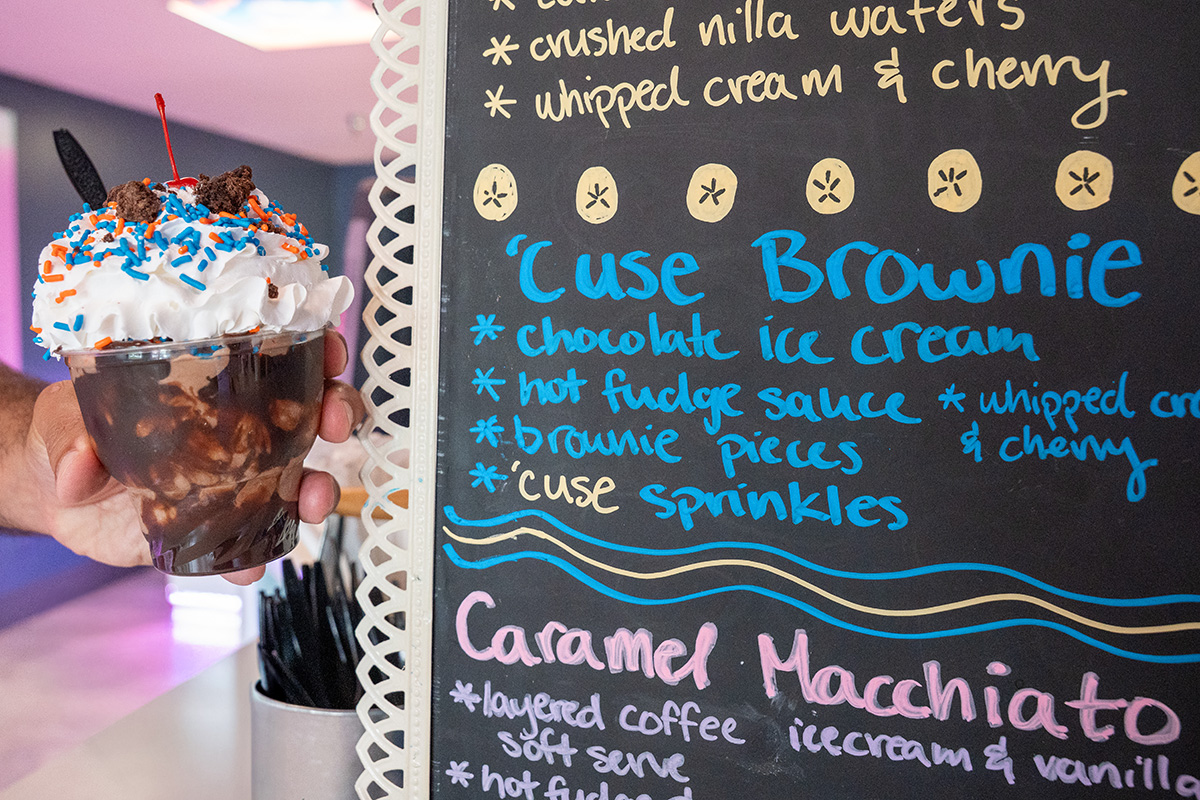 * crushed nilla wafers
* whipped cream & cherry
'Cuse Brownie
* chocolate ice cream
* hot fudge sauce
* brownie pieces
* 'cuse sprinkles
* whipped cr
& cherry
Caramel Macchiato
* layered coffee
soft serve
* hot fudge
icecream & vanilla